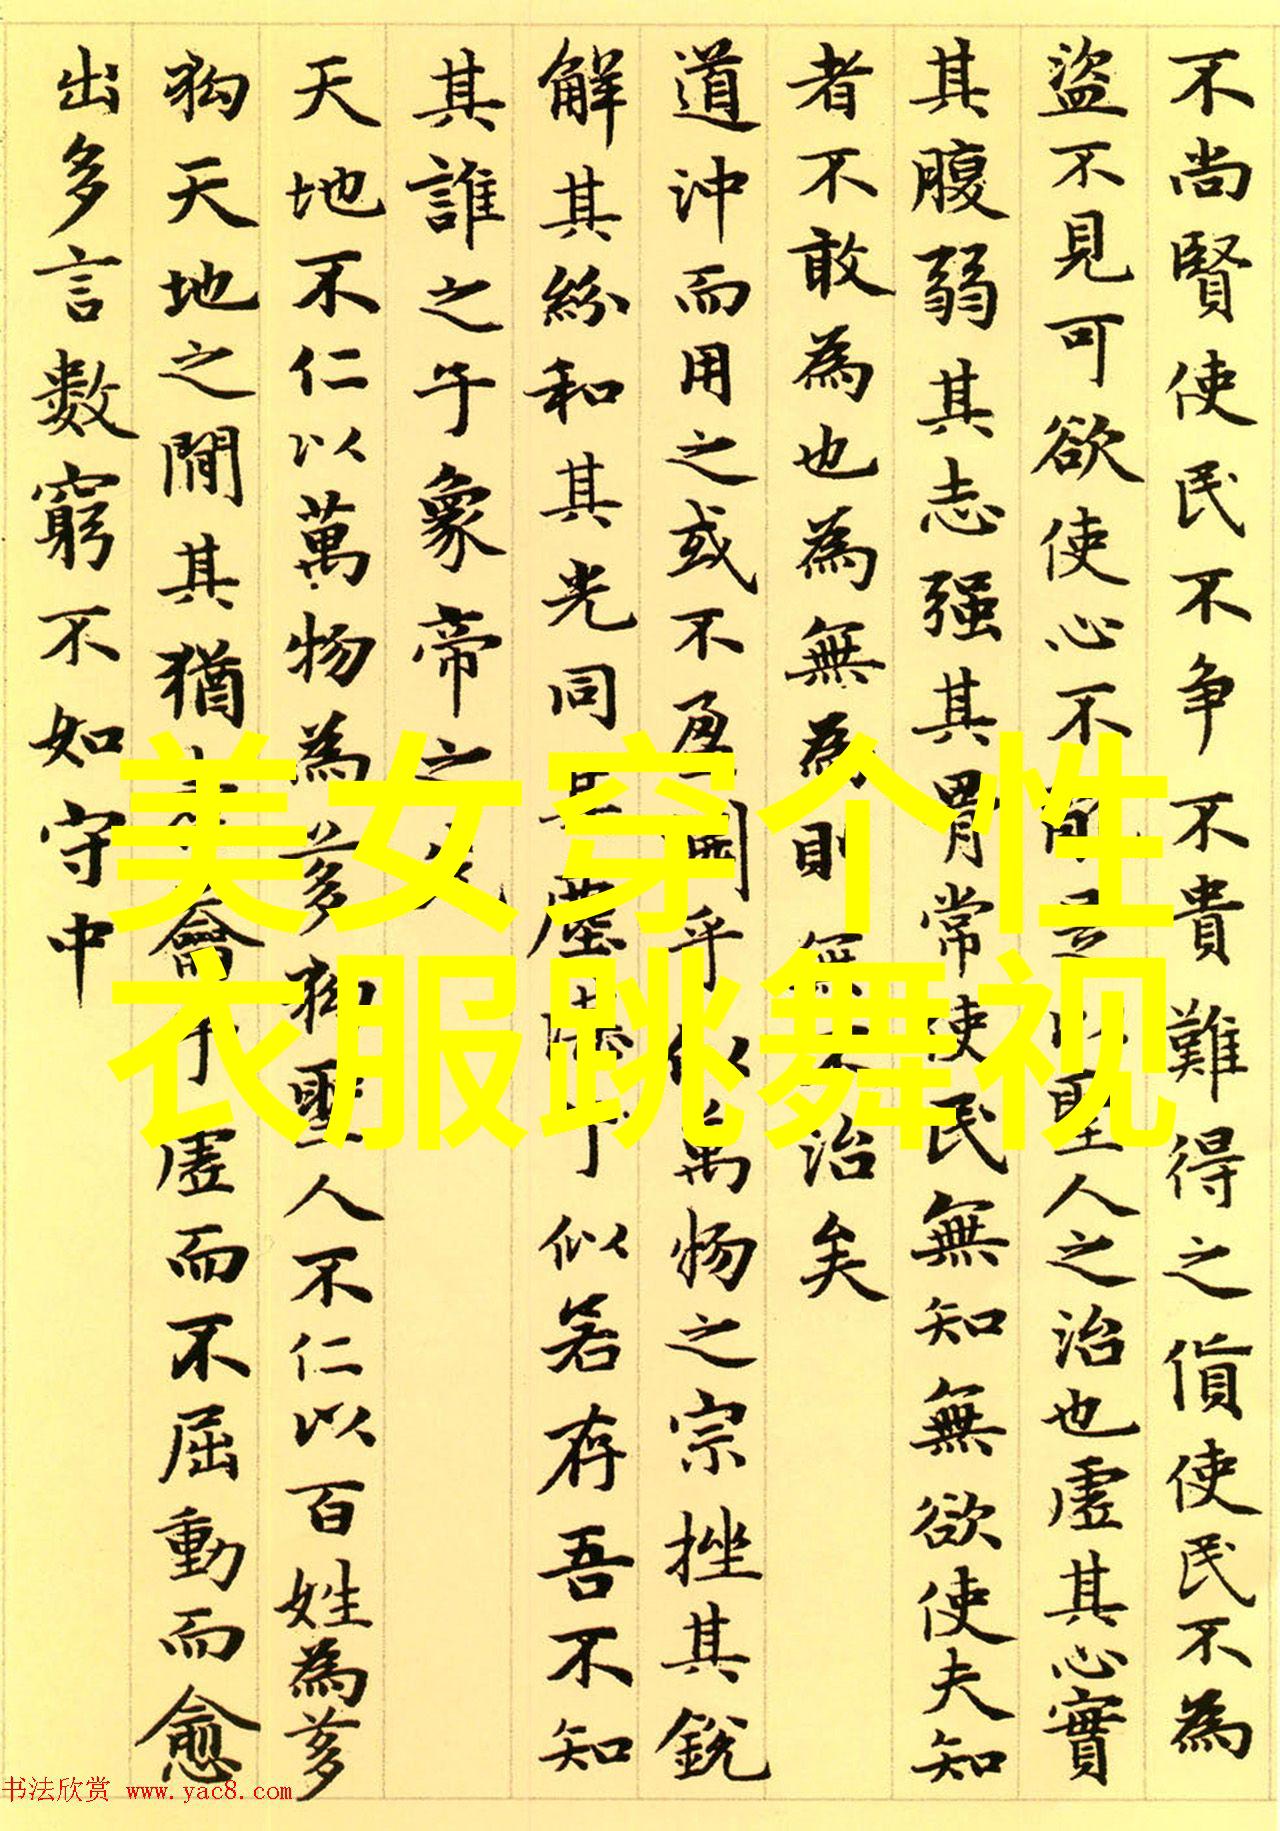 不尚賢使民不争不貴難得之貨使民不為
盜不見可欲使心不亂是以聖人之治也虛其心實
其腹弱其志强其骨常使民無知無欲使夫知
者不敢為也為無為則無不治矣
道沖而用之或不盈淵乎似萬物之宗挫其銳
解其紛和其光同其塵湛乎似若存吾不知
其誰之子象帝之先
天地不仁以萬物為芻狗聖人不仁以百姓為芻
狗天地之間其猶橐籥乎虛而不屈動而愈
出多言數窮不如守中
美女穿个性
衣服跳舞视
书法欣赏 www.yac8.com